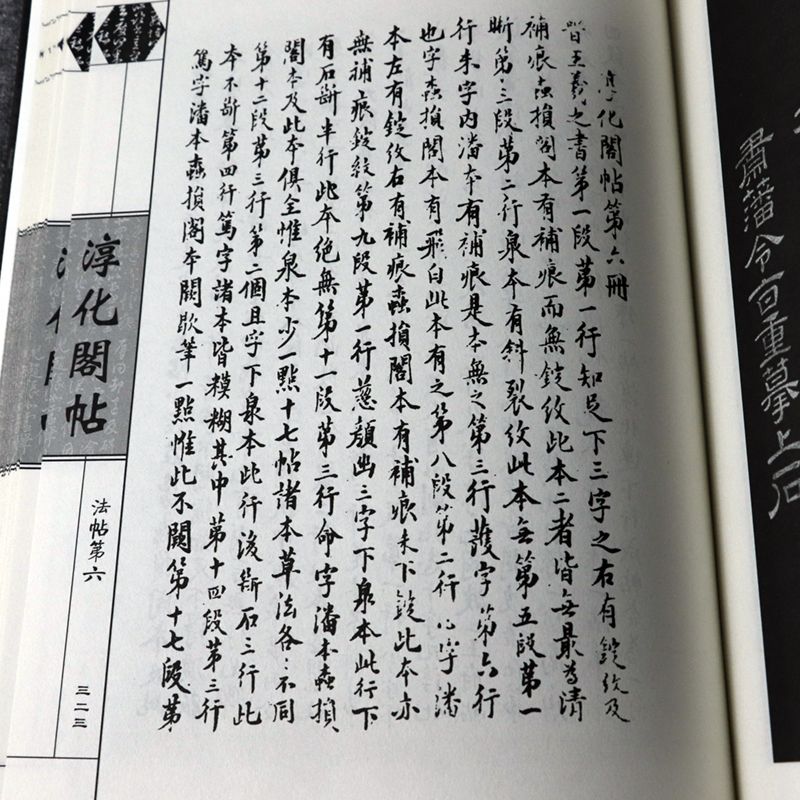 肅藩令旨重摹上石
淳化閣帖第六冊
晉王羲之書第一段第一行知足下三字之右有錠紋及
補痕蟲損閣本有補痕而無錠紋此本二者皆無最為清
晰第三段第二行泉本有斜裂紋此本無第五段第一
行未字内潘本有補痕是本無之第三行護字第六行
也字蟲損閣本有飛白此本有之第八段第二行心字潘
本左有錠紋右有補痕蟲損閣本有補痕未下錠此本亦
無補痕錠紋第九段第一行慈顏幽三字下泉本此行下
有石斷半行此本絕無第十一段第三行命字潘本蟲損
閣本及此本俱全惟泉本少一點十七帖諸本草法各〻不同
第十二段第三行第二個且字下泉本此行後斷石三行此
本不斷第四行篤字諸本皆糢糊其中第十四段第三行
篤字潘本蟲損閣本闕歇筆一點惟此不闕第十七段第
淳化閣帖
法帖第六
三二三